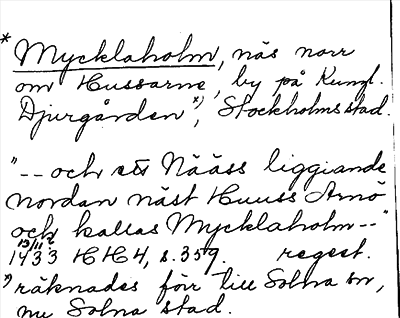 * Mycklaholm, näs norr
om Hussarne, by på Kungl.
Djurgården x), Stockholms stad.
"-- och ett Nääss liggiande
nordan näst Huuss Arnö
och kallas Mycklaholm --"
13/11 1433 HH4, s. 359. regest.
x) räknades förr till Solna sn,
nu Solna stad.